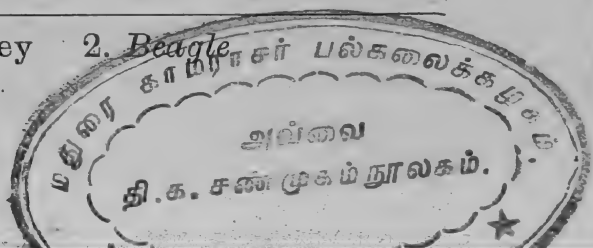 ey 2. Beagle
மதுரை காமராசர் பல்கலைக்கழகம்.
அவ்வை
தி.க. சண்முகம் நூலகம்.